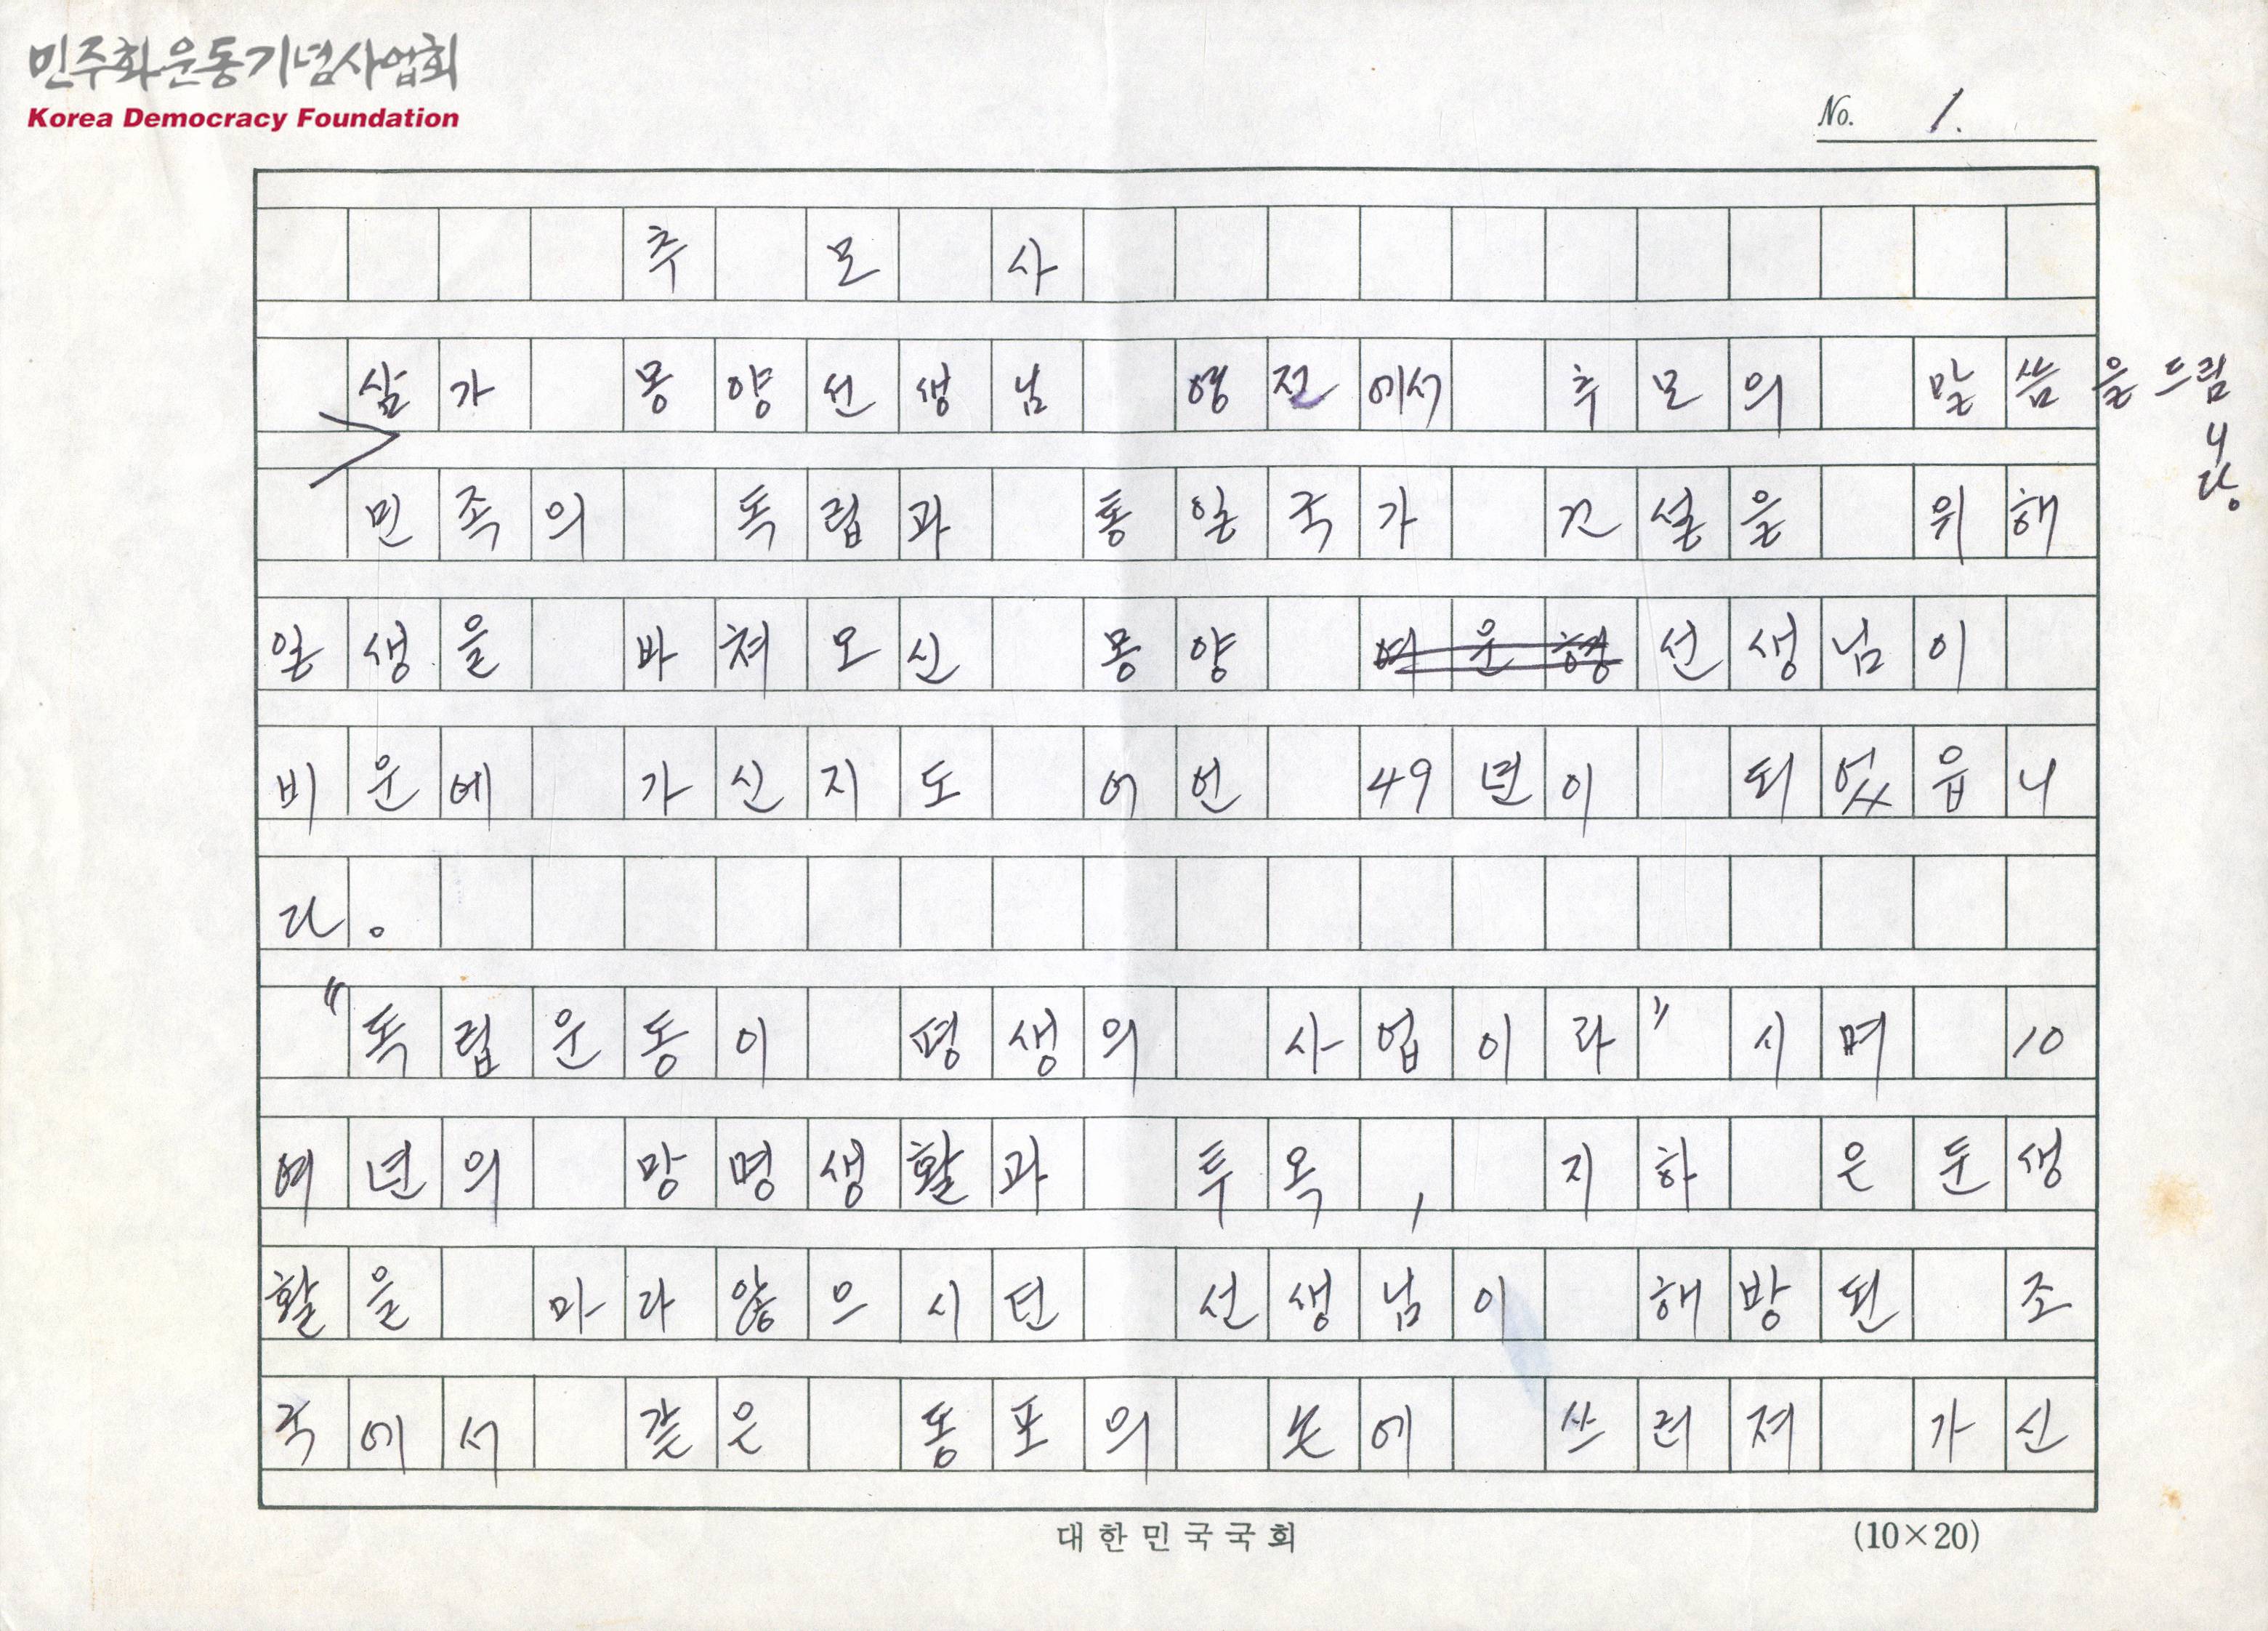 민주화운동기념사업회
Korea Democracy Foundation
No. 1.
추 모 사
삼가 몽양선생님 영전에서 추모의 말씀을 드림니다.
민족의 독립과 통일국가 건설을 위해
일생을 바쳐오신 몽양 여운형 선생님이
비운에 가신지도 어언 49년이 되었읍니
다.
"독립운동이 평생의 사업이라" 시며 10
여년의 망명생활과 투옥, 지하 은둔생
활을 마다않으시던 선생님이 해방된 조
국에서 같은 동포의 손에 쓰러져 가신
대한민국국회
(10×20)